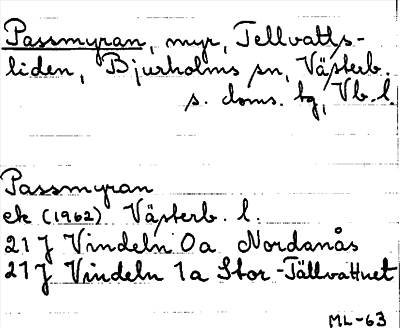 Passmyran, myr, Tellvatts-
liden, Bjurholms sn, Västerb.
s. doms. bg, Vb. l.
Passmyran
ek (1962) Västerb. l.
21 J Vindeln 0a Nordanås
21 J Vindeln 1a Stor-Tällvattnet
ML-63